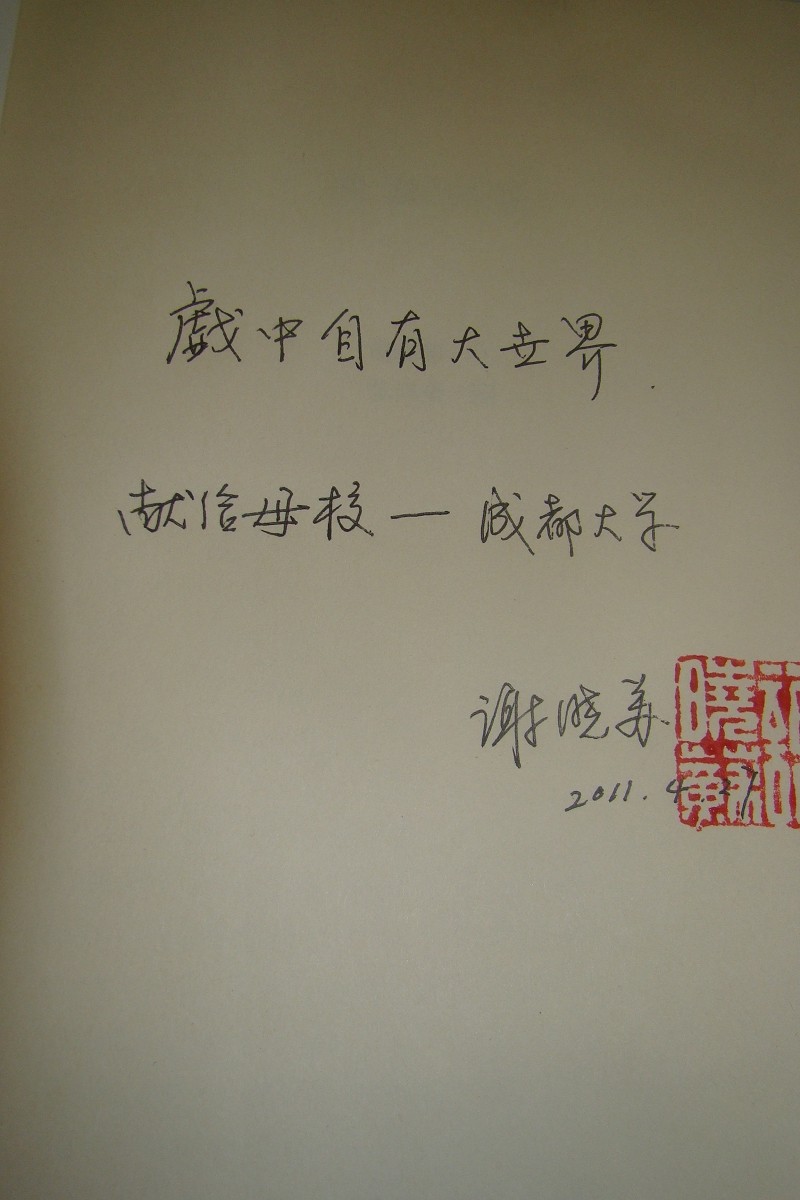 戲中自有大世界.
献给母校—成都大学
谢晓苏
2011.4.27